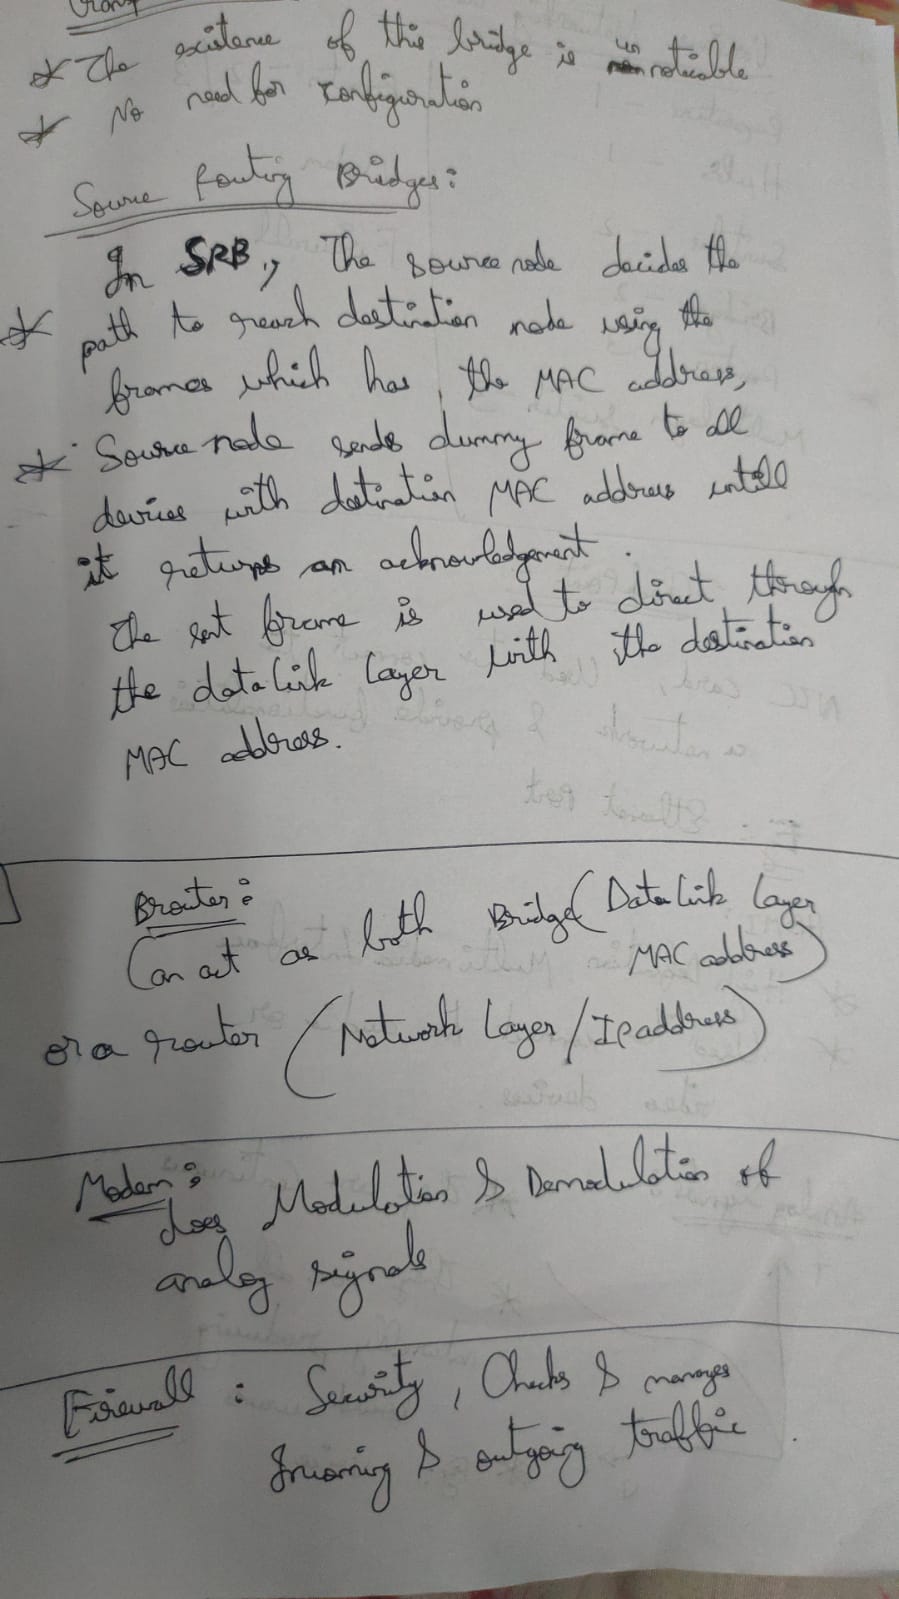 * The existence of this bridge is un noticable
* No need for configuration
Source Routing Bridges:
In SRB, The source node decides the
* path to reach destination node using the
frames which has, the MAC address,
* Source node sends dummy frame to all
devices with destination MAC address untill
it returns an acknowledgement.
The sent frame is used to direct through
the data link layer with the destination
MAC address.
Brouter:
Can act as both Bridge (Data link layer
MAC address)
or a router (Network layer / IP address)
Modem:
does Modulation & Demodulation of
analog signals
Firewall : Security, Checks & manages
Incoming & outgoing traffic.